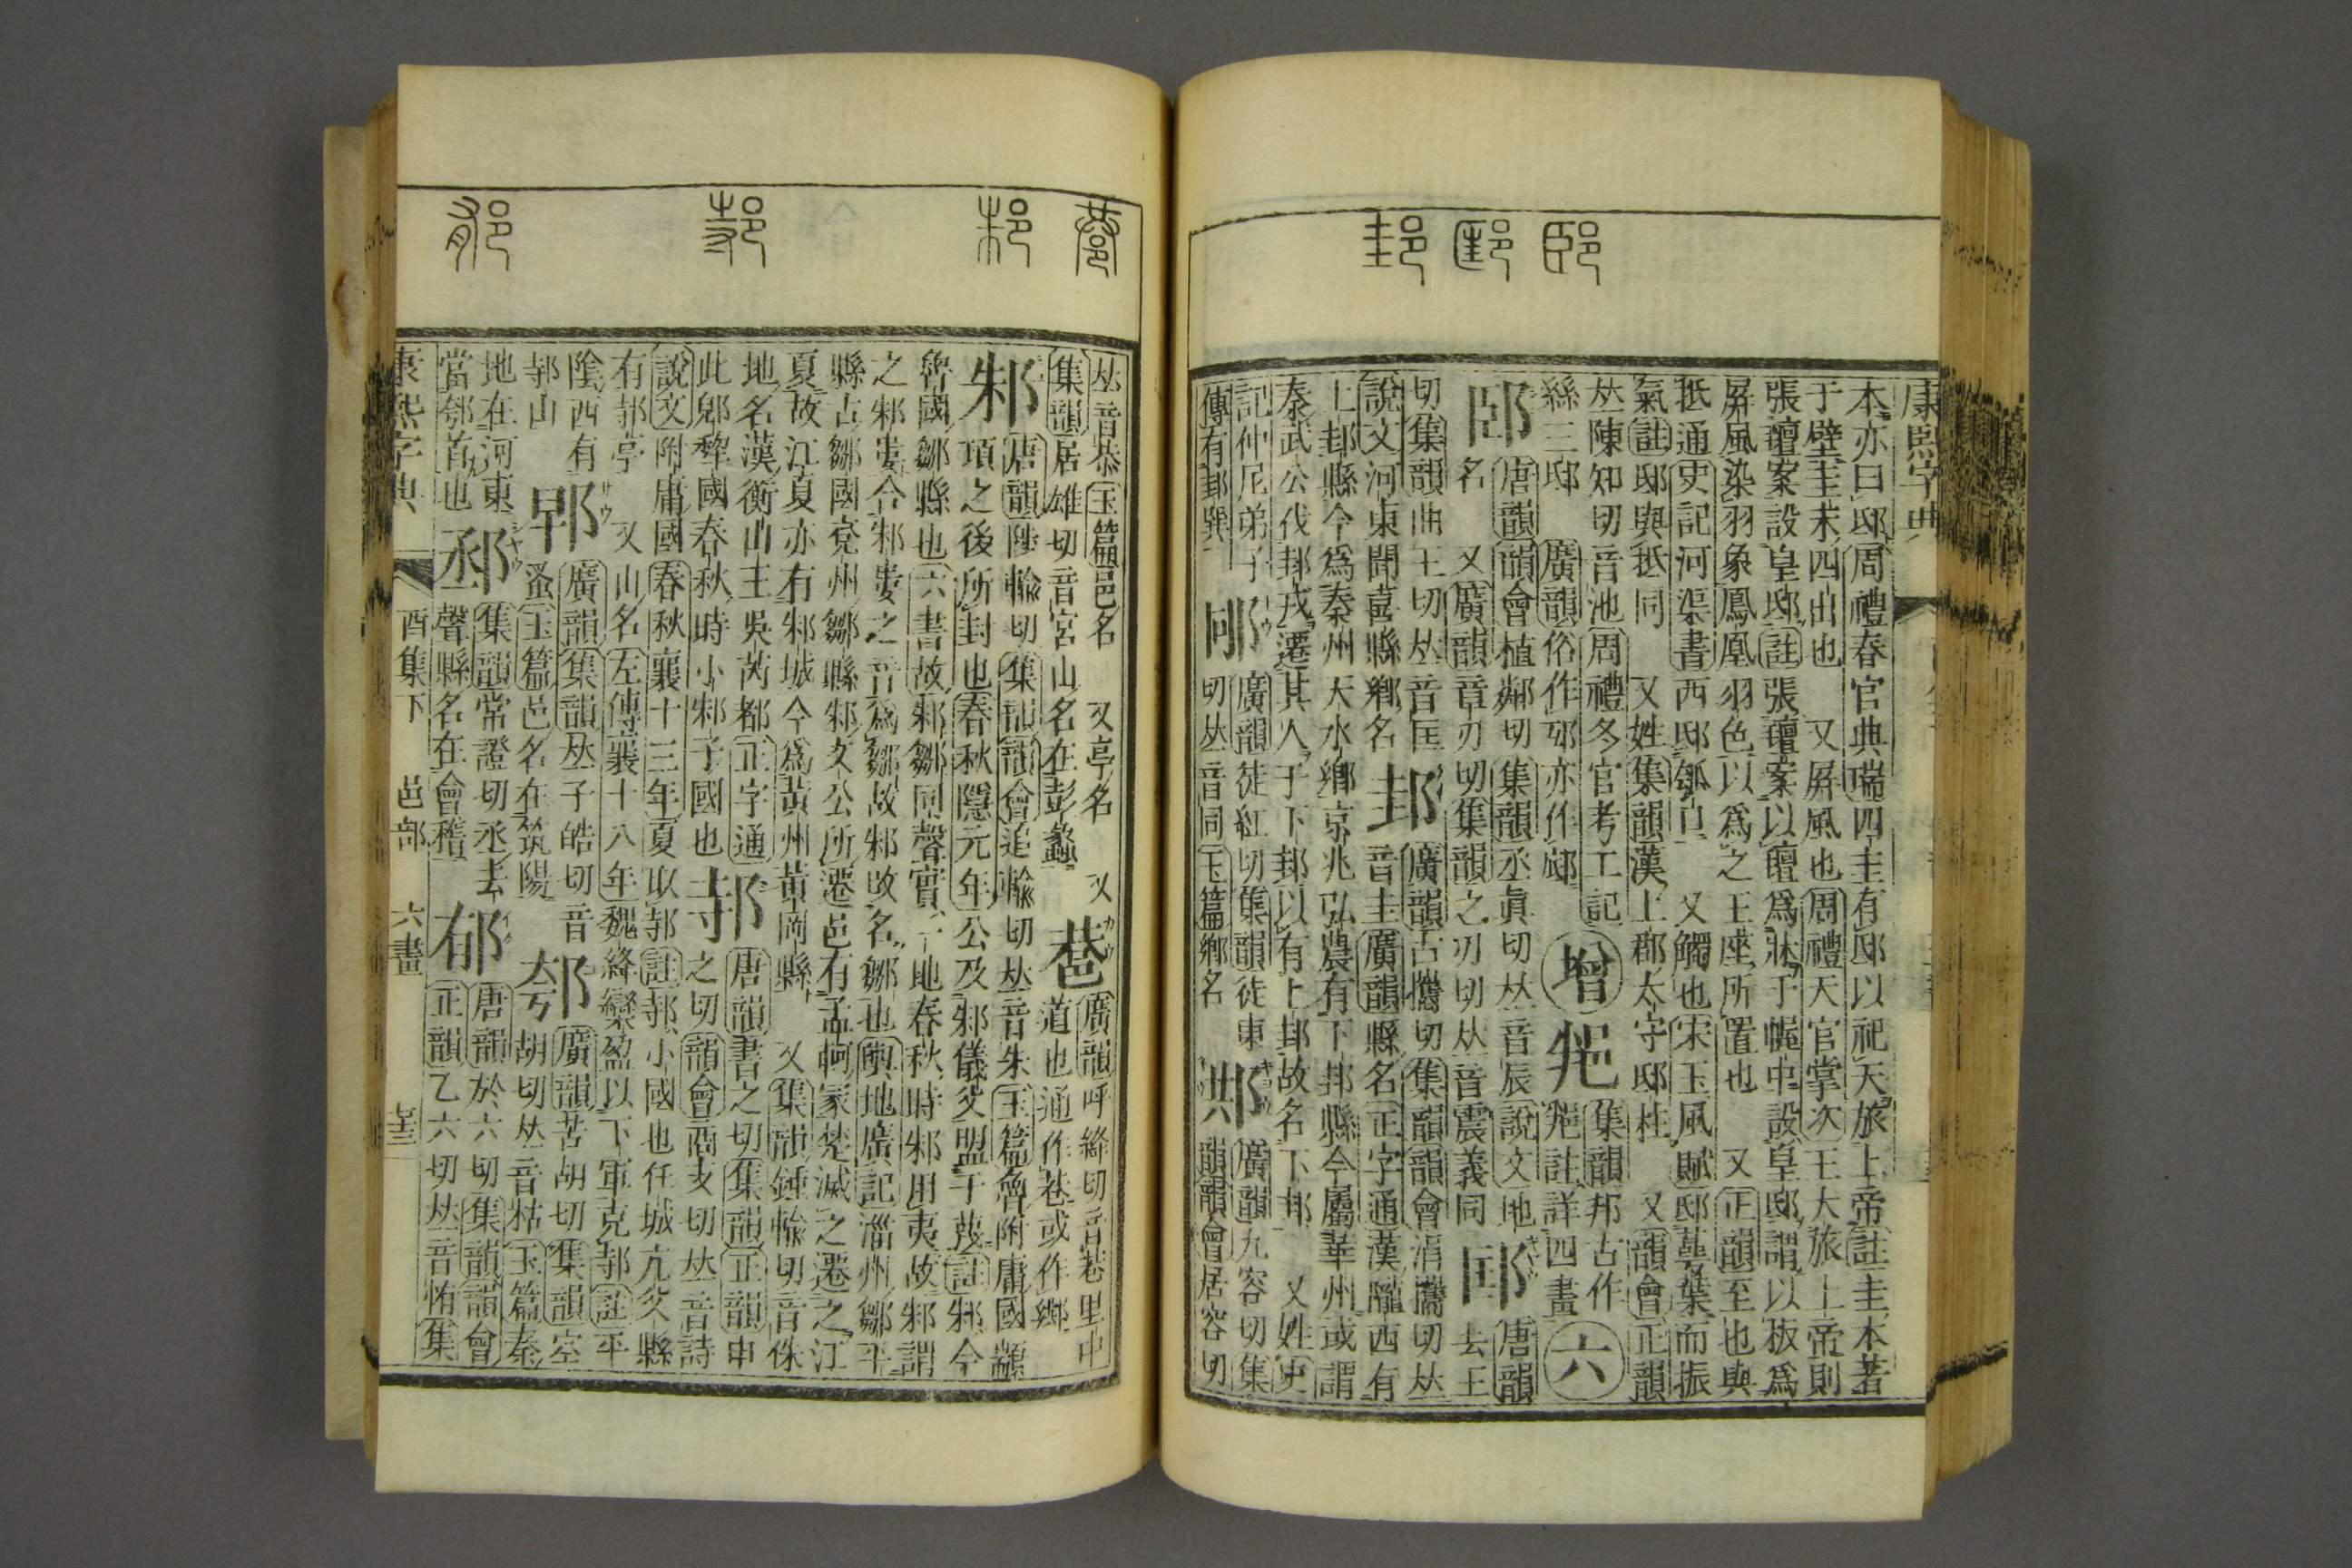 康熙字典
本亦曰邸周禮春官典瑞四圭有邸以祀天旅上帝註圭本著
于璧圭末四出也 又屛風也周禮天官掌次王大旅上帝則
張氊案設皇邸註張氊案以氊爲牀于幄中設皇邸謂以板爲
屛風染羽象鳳凰羽色以爲之王座所置也 又正韻至也與
抵通史記河渠書西邸瓠口 又觸也宋玉風賦邸華葉而振
氣註邸與抵同 又姓集韻漢上郡太守邸杜 又韻會正韻
𠀤陳知切音池周禮冬官考工記
絲三邸 廣韻俗作𨚲亦作𨛗
增 𨚕 集韻邦古作𨚕註詳四畫
六
邼 唐韻韻會植鄰切集韻丞眞切𠀤音辰說文地
名 又廣韻章刃切集韻之刃切𠀤音震義同
邼 唐韻去王
切集韻曲王切𠀤音匡
說文河東聞喜縣鄕名
邽 廣韻古攜切集韻韻會涓攜切𠀤
音圭廣韻縣名正字通漢隴西有
上邽縣今爲秦州天水鄕京兆弘農有下邽縣今屬華州或謂
秦武公伐邽戎遷其人于下邽以有上邽故名下邽 又姓史
記仲尼弟子
傳有邽巽
𨚯 廣韻徒紅切集韻徒東
切𠀤音同玉篇鄕名
𨛉 廣韻九容切集
韻韻會居容切
𠀤音恭玉篇邑名 又亭名 又
集韻居雄切音宮山名在彭蠡
䢽 廣韻呼絳切音巷里中
道也通作巷或作鄕
邾 唐韻陟輸切集韻韻會追輸切𠀤音朱玉篇魯附庸國顓
頊之後所封也春秋隱元年公及邾儀父盟于蔑註邾今
魯國鄒縣也六書故邾鄒同聲實一地春秋時邾用夷故邾謂
之邾婁合邾婁之音爲鄒故邾改名鄒也輿地廣記淄州鄒平
縣古鄒國兗州鄒縣邾文公所遷邑有孟軻冢楚滅之遷之江
夏故江夏亦有邾城今爲黃州黃岡縣 又集韻鍾輸切音侏
地名漢衡山王吳芮都正字通
此郳犂國春秋時小邾子國也
邿 唐韻書之切集韻正韻申
之切韻會商支切𠀤音詩
說文附庸國春秋襄十三年夏取邿註邿小國也任城亢父縣
有邿亭 又山名左傳襄十八年魏絳欒盈以下軍克邿註平
陰西有
邿山
𨚷 廣韻集韻𠀤子皓切音
蚤玉篇邑名在筑陽
䣀 廣韻苦胡切集韻空
胡切𠀤音枯玉篇秦
地在河東
當邻首也
𨛌 集韻常證切丞去
聲縣名在會稽
郁 唐韻於六切集韻韻會
正韻乙六切𠀤音㥛集
康熙字典 酉集下 邑部 六畫